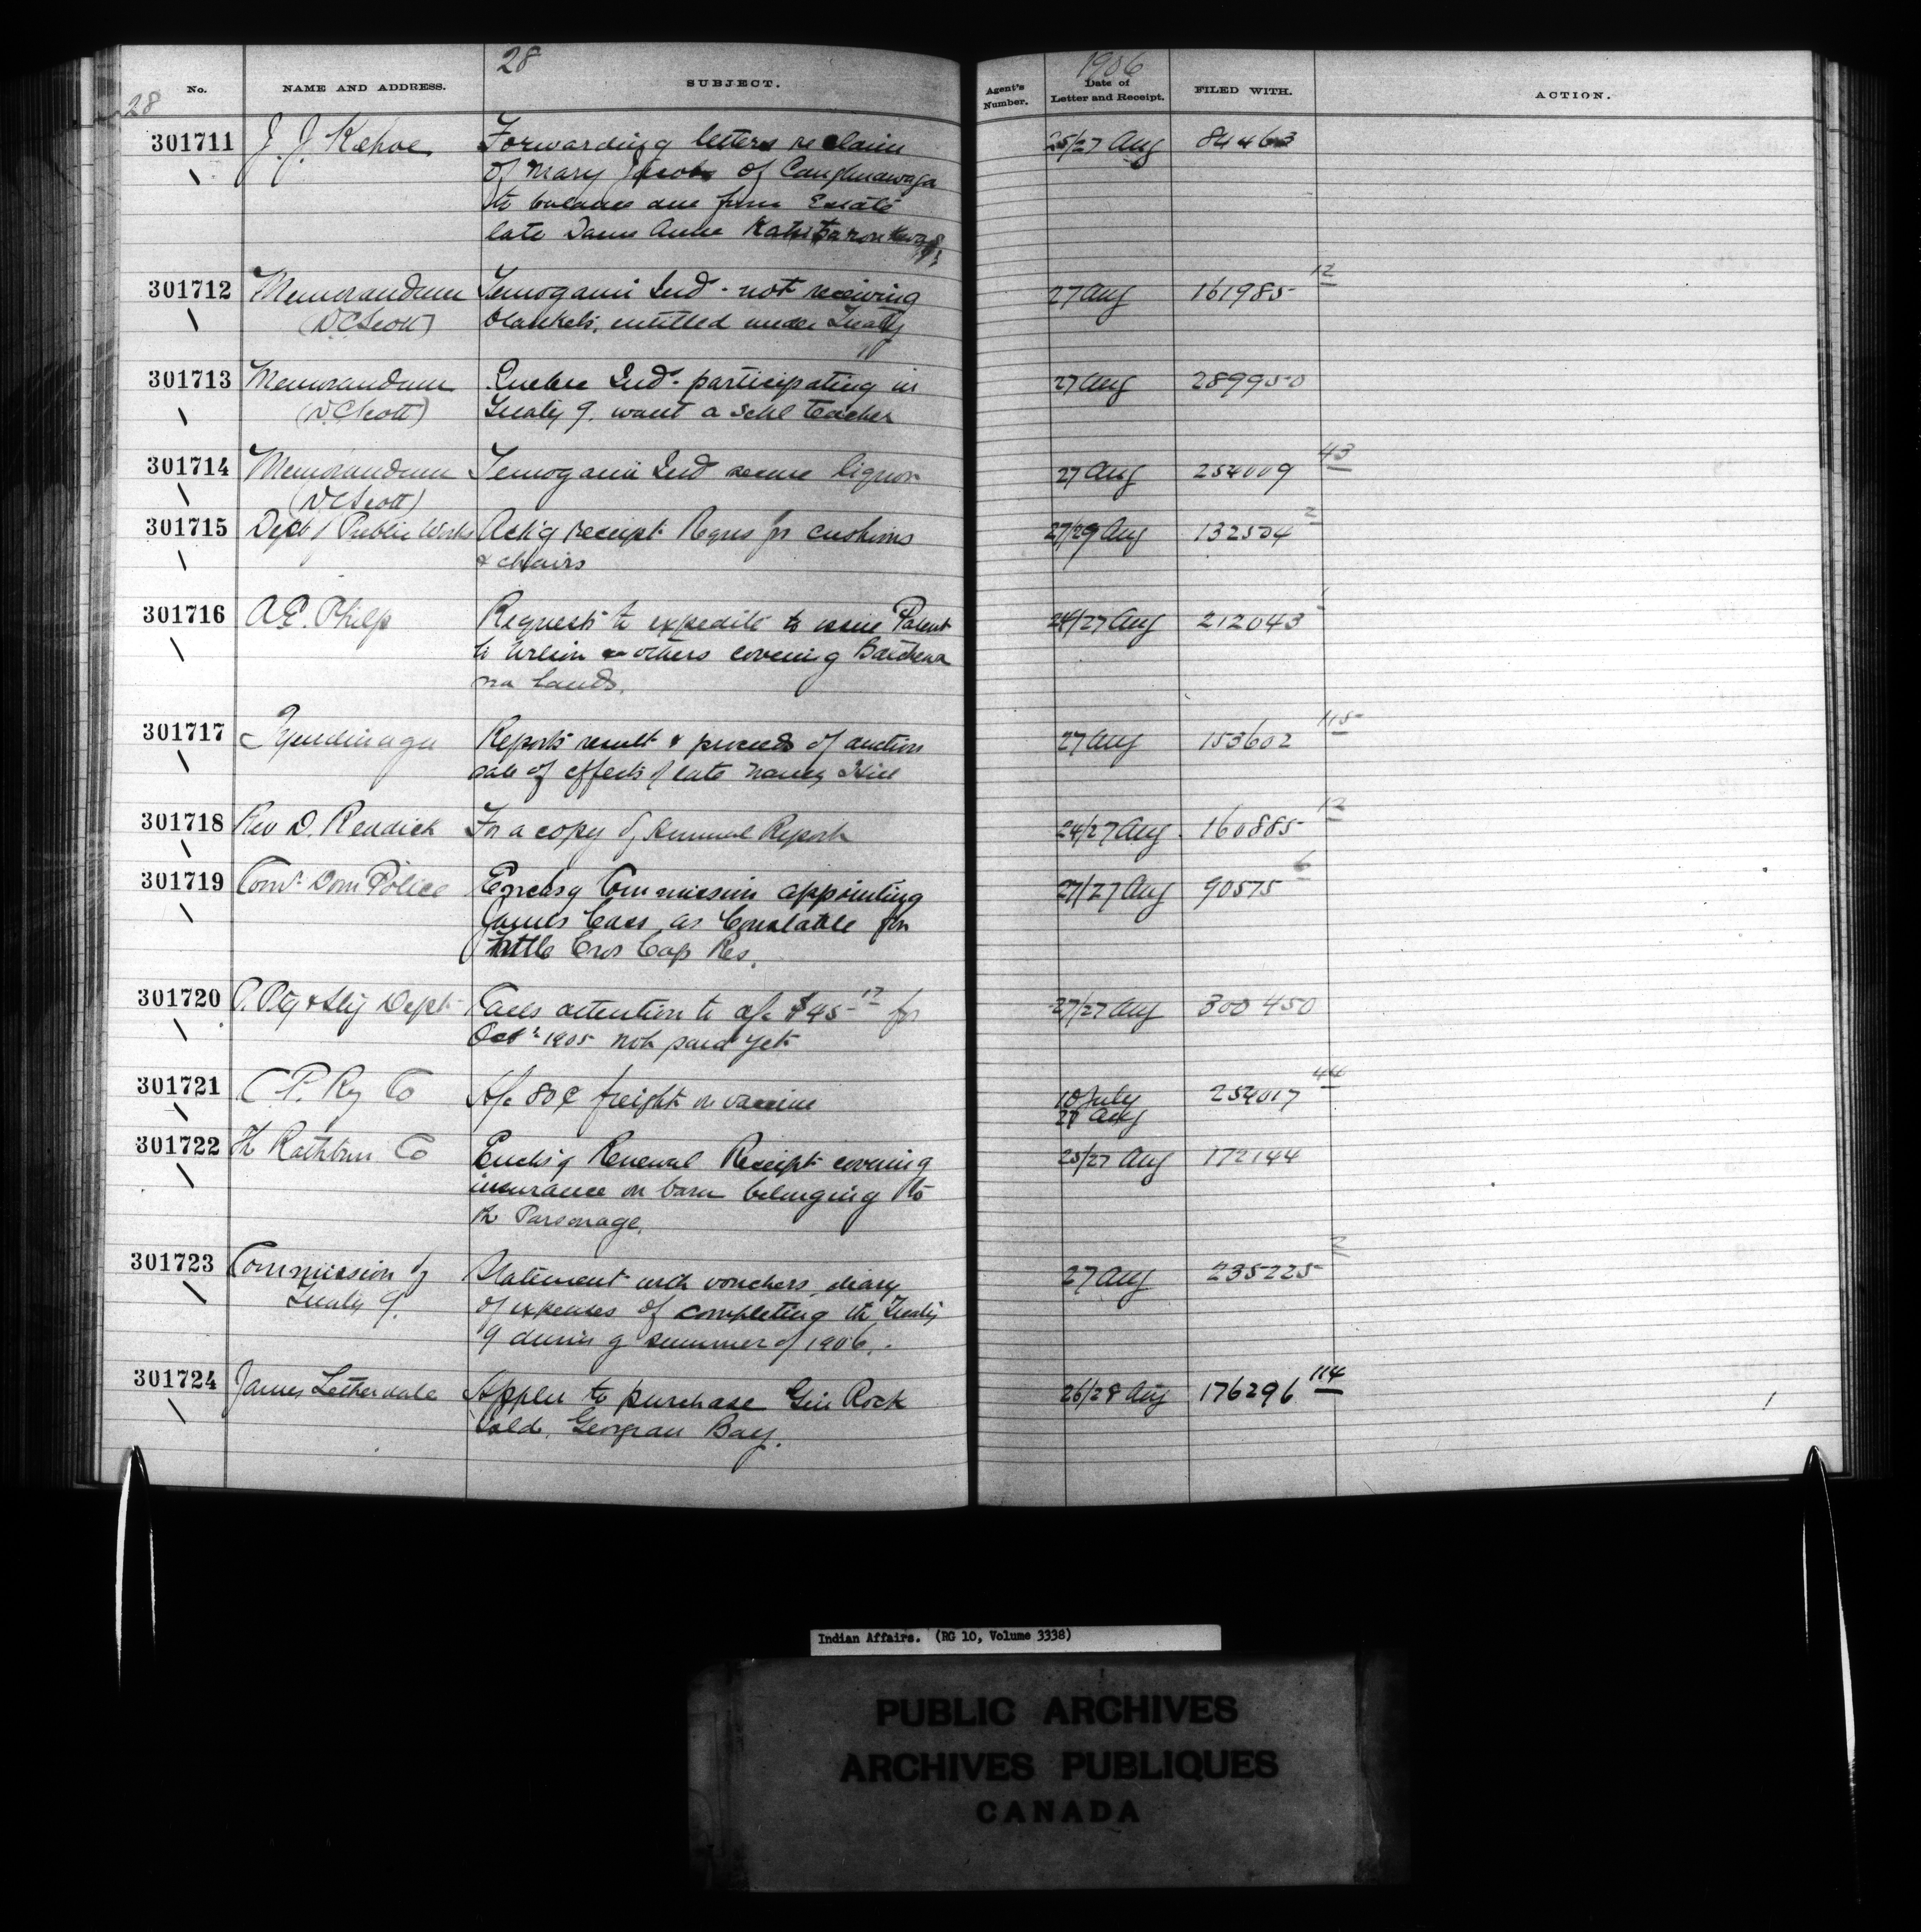 28 1906
No. NAME AND ADDRESS. SUBJECT. Agent's Number. Date of Letter and Receipt. FILED WITH. ACTION.
28
301711 J. J. Kehoe Forwarding letters re claim 25/27 Aug 84463
of Mary Jacobs of Caughnawaga
to balance due from Estate
late Dame Anne
301712 Memorandum Temogami Ind - not receiving 27 Aug 161985 12
(D C Scott) blankets, entitled under Treaty
301713 Memorandum Quebec Inds - participating in 27 Aug 289950
(D C Scott) Treaty 9. want a Schl teacher
301714 Memorandum Temogami Ind secure liquor 27 Aug 254009 43
(D C Scott)
301715 Dept / Public Works Ack'g receipt Reqns for cushions 27/29 Aug 132504 2
& chairs
301716 A. E. Philp Requests to expedite to issue Patent 24/27 Aug 212043
to others covering Batchewa
na lands.
301717 Tyendinaga Reports result & proceeds of auction 27 Aug 153602 115
sale of effects / late Nancy Hill
301718 Rev D. Reddick For a copy of Annual Report 24/27 Aug 160885 12
301719 Comr Dom Police Enclosg Commission appointing 27/27 Aug 90575 6
James Cass as Constable for
Little Cros Cap Res.
301720 P. Ptg & Sty Dept Calls attention to a/c $45 17 for 27/27 Aug 300450
Octr 1905 not paid yet
301721 C. P. Ry Co A/c 80¢ freight on vaccine 10 July 254017 44
27 Aug
301722 Th Rathbun Co Encls'g Renewal Receipt covering 25/27 Aug 172144
insurance on barn belonging to
th Parsonage.
301723 Commission of Statement with vouchers, diary 27 Aug 235225
Treaty 9. of expenses of completing th Treaty
9 during summer of 1906.
301724 James Applies to purchase Gin Rock 26/28 Aug 176296 114
Isld, Georgian Bay.
Indian Affairs. (RG 10, Volume 3338)
PUBLIC ARCHIVES
ARCHIVES PUBLIQUES
CANADA